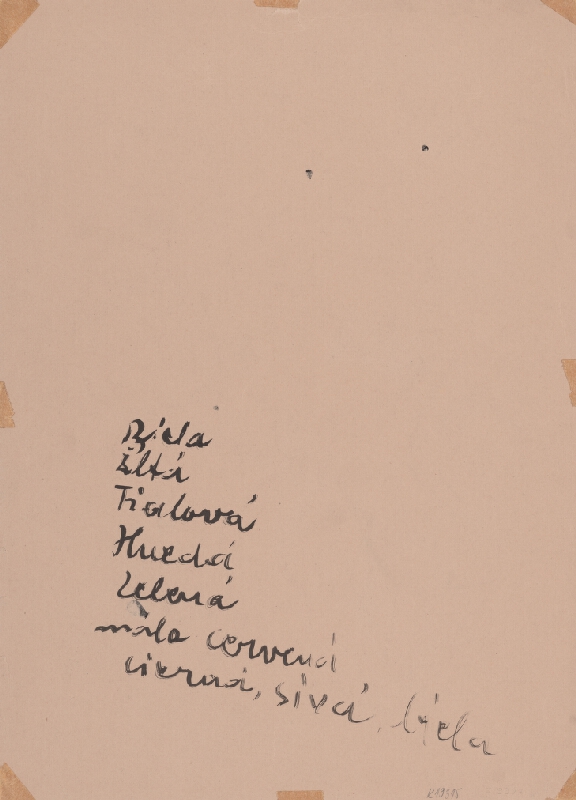 Biela
Žltá
Fialová
Hnedá
Zelená
málo červená
čierna, sivá, biela